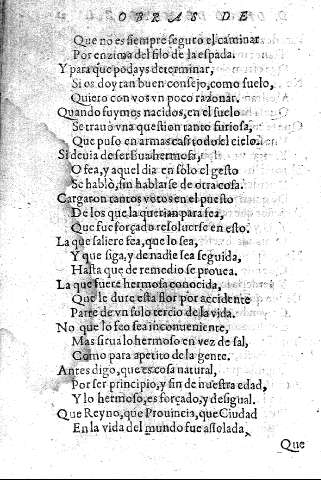 OBRAS DE
Que no es siempre seguro el caminar
Por enzima del filo de la espada.
Y para que podays determinar,
Si os doy tan buen consejo, como suelo,
Quiero con vos vn poco razonar.
Quando fuymos nacidos, en el suelo
Se trauò vna question tanto furiosa,
Que puso en armas casi todo el cielo.
Si deuia de ser Eua hermosa,
O fea, y aquel dia en sòlo el gesto
Se hablò, sin hablarse de otra cosa.
Cargaron tantos votos en el puesto
De los que la querian para fea,
Que fue forçado resoluerse en esto.
La que saliere fea, que lo sea,
Y que siga, y de nadie sea seguida,
Hasta que de remedio se prouea.
La que fuere hermosa conocida,
Que le dure esta flor por accidente
Parte de vn solo tercio de la vida.
No que lo feo sea inconueniente,
Mas sirua lo hermoso en vez de sal,
Como para apetito de la gente.
Antes digo, que es cosa natural,
Por ser principio, y fin de nuestra edad,
Y lo hermoso, es forçado, y desigual.
Que Reyno, que Prouincia, que Ciudad
En la vida del mundo fue assolada,
Que